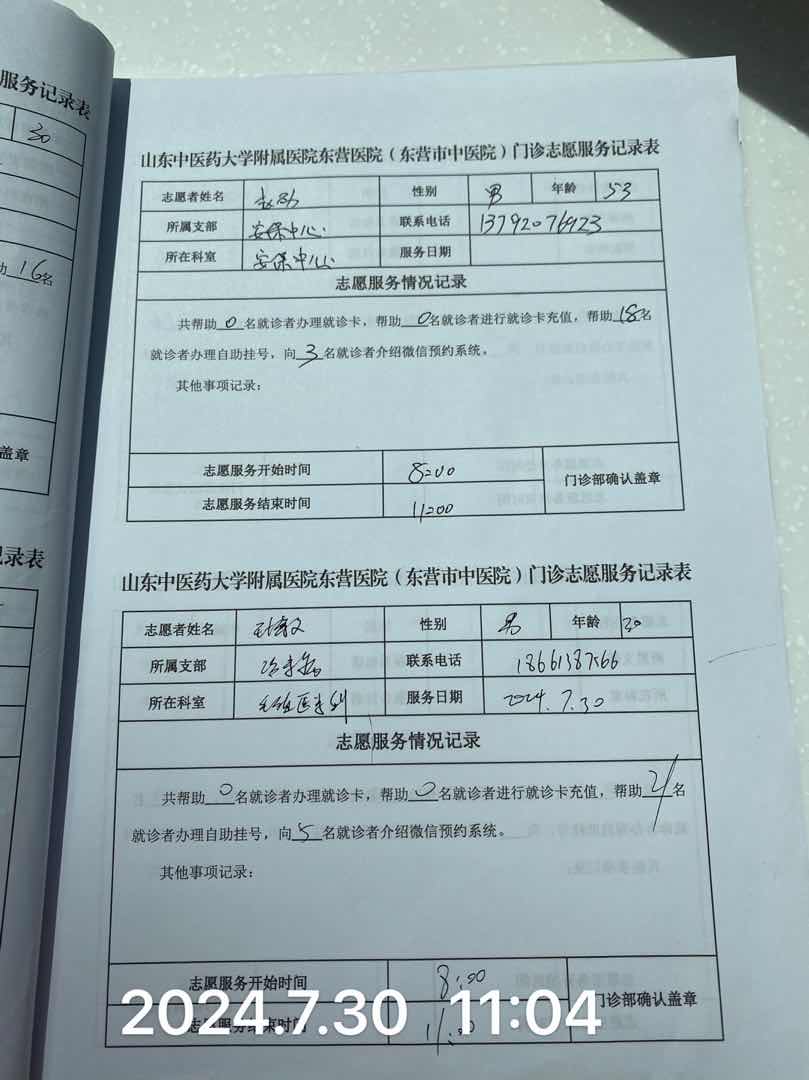 服务记录表
30
助16名
盖章
记录表
山东中医药大学附属医院东营医院（东营市中医院）门诊志愿服务记录表
志愿者姓名 性别 男 年龄 53
所属支部 安保中心 联系电话 13792076923
所在科室 安保中心 服务日期
志愿服务情况记录
共帮助0名就诊者办理就诊卡，帮助0名就诊者进行就诊卡充值，帮助18名
就诊者办理自助挂号，向3名就诊者介绍微信预约系统。
其他事项记录：
志愿服务开始时间 8:00 门诊部确认盖章
志愿服务结束时间 11:00
山东中医药大学附属医院东营医院（东营市中医院）门诊志愿服务记录表
志愿者姓名 性别 男 年龄 30
所属支部 治未病 联系电话 18661387566
所在科室 服务日期 2024.7.30
志愿服务情况记录
共帮助0名就诊者办理就诊卡，帮助0名就诊者进行就诊卡充值，帮助21名
就诊者办理自助挂号，向5名就诊者介绍微信预约系统。
其他事项记录：
志愿服务开始时间 8:00 门诊部确认盖章
志愿服务结束时间 11:00
2024.7.30 11:04